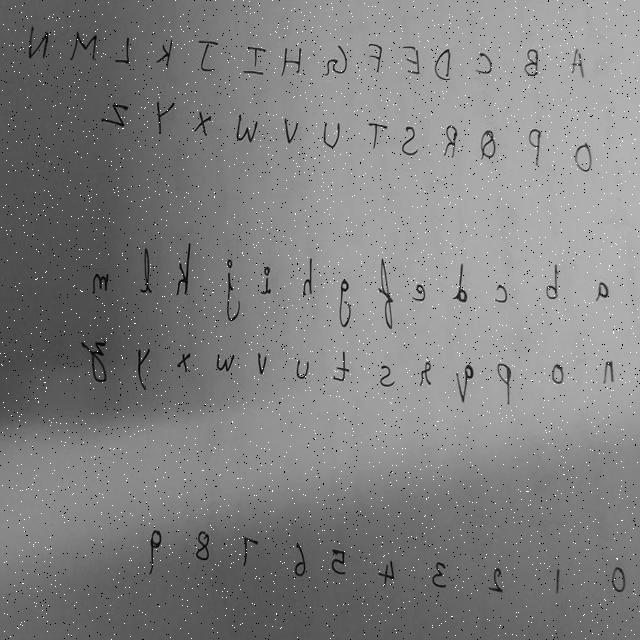 A B C D E F G H I J K L M N
O P Q R S T U V W X Y Z
a b c d e f g h i j k l m
n o p q r s t u v w x y z
0 1 2 3 4 5 6 7 8 9